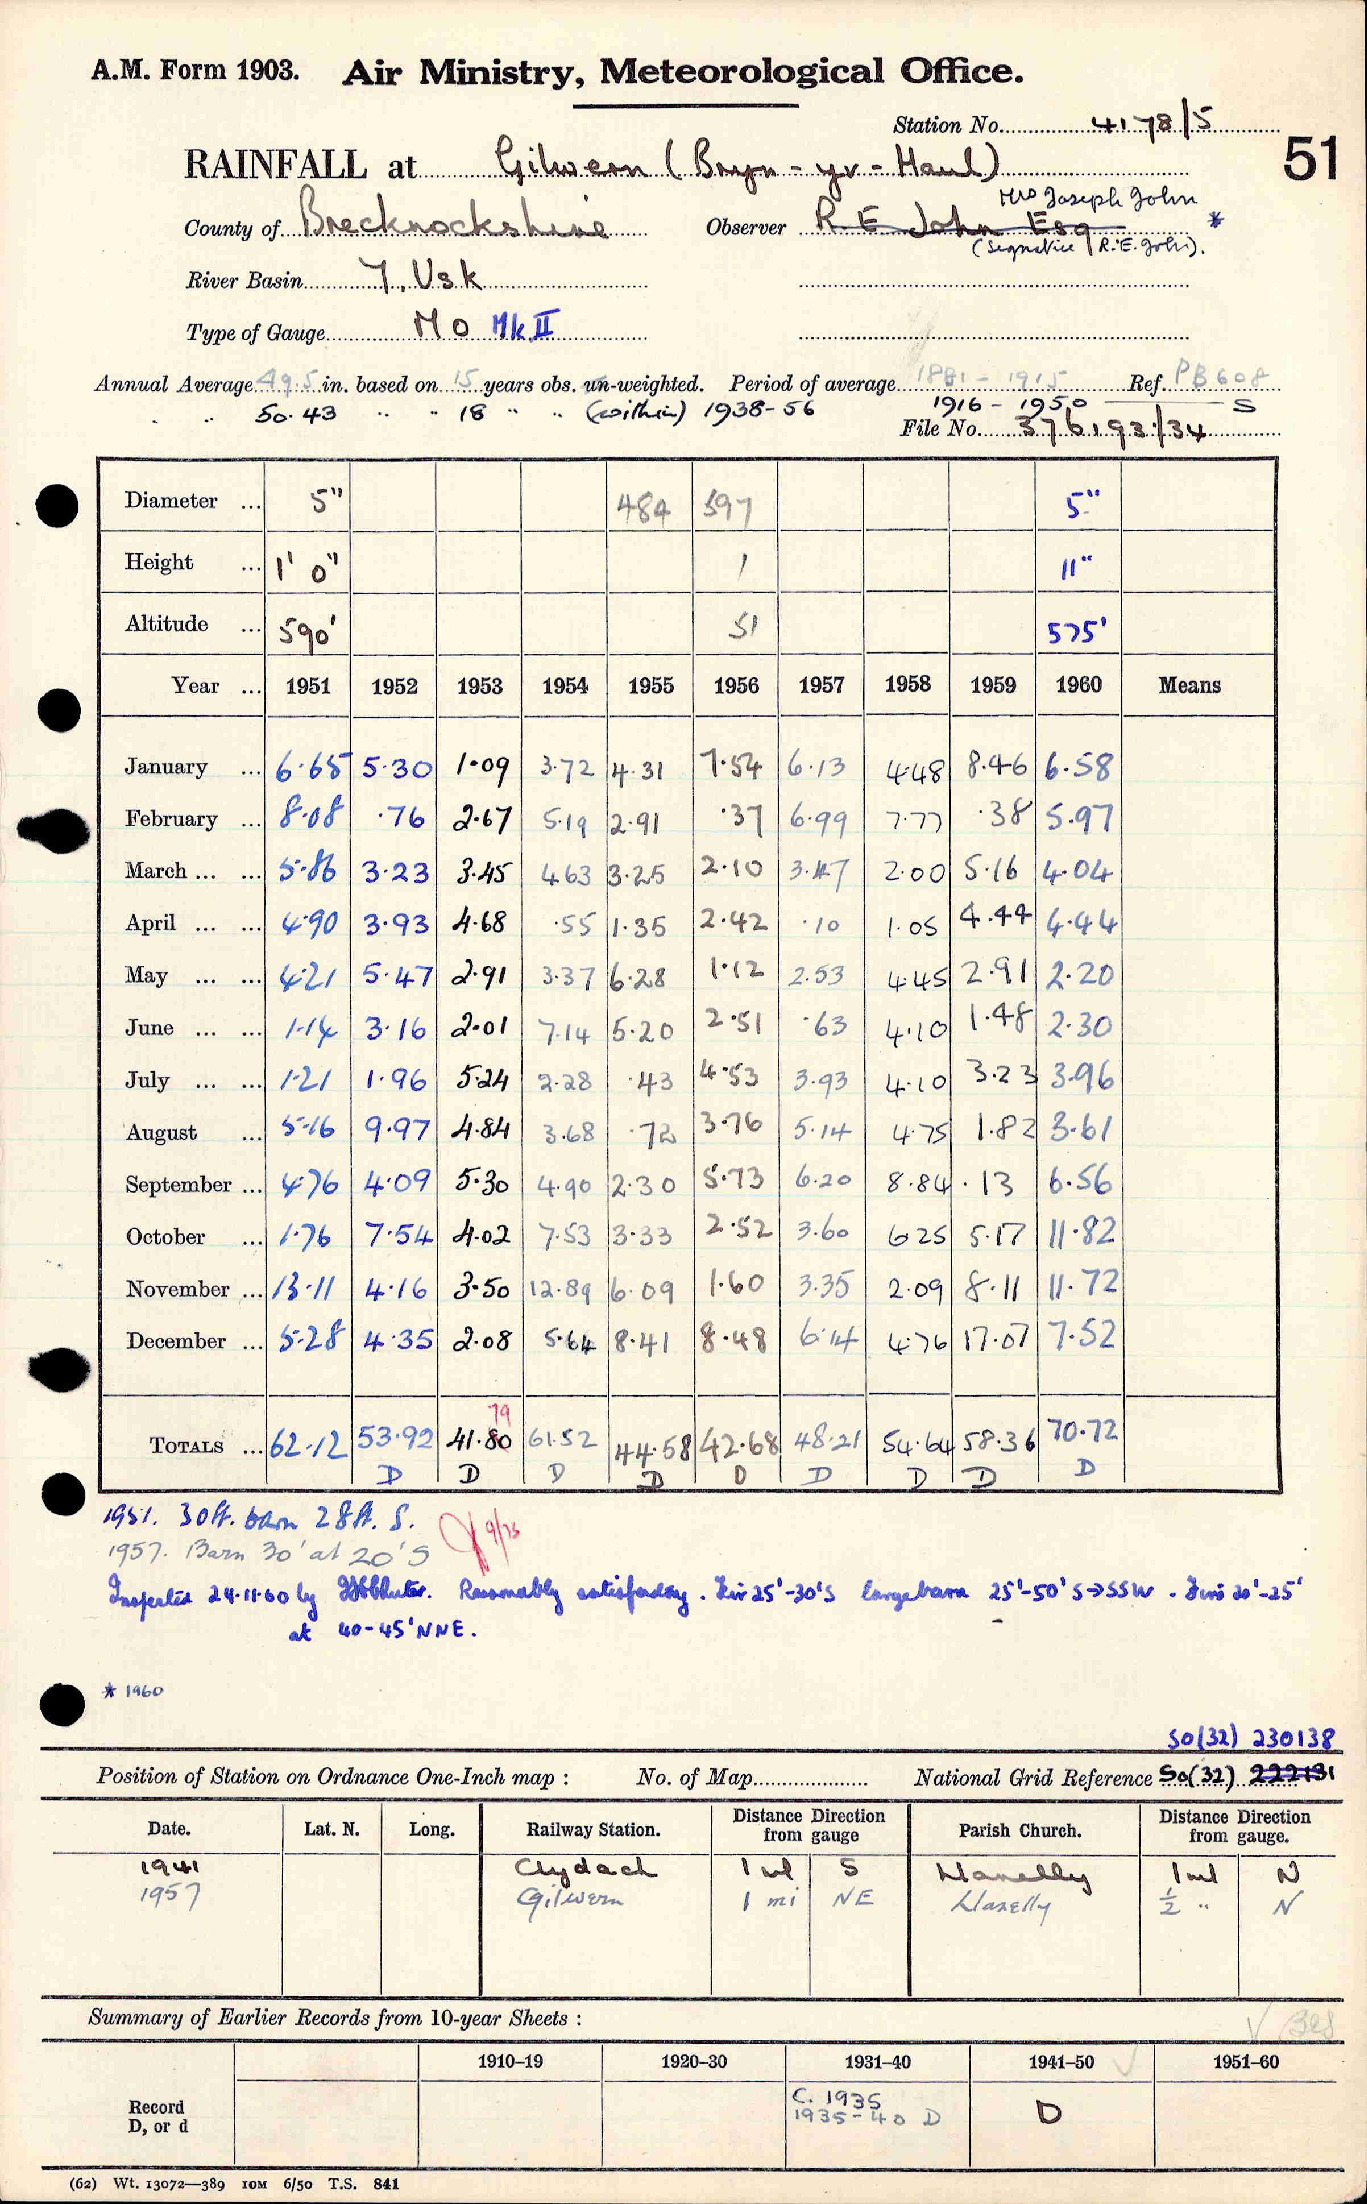 A.M. Form 1903. Air Ministry, Meteorological Office.
Station No. 4178/5
51
RAINFALL at Gilwern (Bryn-yr-Haul)
Mrs Joseph John
County of Brecknockshire Observer R E John Esq *
(Signature R.E. John).
River Basin 7, Usk
Type of Gauge MO Mk II
Annual Average 49.5 in. based on 15 years obs. un-weighted. Period of average 1881-1915 Ref. PB608
" " 50.43 " " 18 " " (within) 1938-56 1916-1950 S
File No. 376193/34
Diameter ... 5" 484 597 5"
Height ... 1' 0" 1 11"
Altitude ... 590' 51 575'
Year ... 1951 1952 1953 1954 1955 1956 1957 1958 1959 1960 Means
January ... 6.65 5.30 1.09 3.72 4.31 7.54 6.13 4.48 8.46 6.58
February ... 8.08 .76 2.67 5.19 2.91 .37 6.99 7.77 .38 5.97
March ... ... 5.86 3.23 3.45 4.63 3.25 2.10 3.47 2.00 5.16 4.04
April ... ... 4.90 3.93 4.68 .55 1.35 2.42 .10 1.05 4.44 4.44
May ... ... 4.21 5.47 2.91 3.37 6.28 1.12 2.53 4.45 2.91 2.20
June ... ... 1.14 3.16 2.01 7.14 5.20 2.51 .63 4.10 1.48 2.30
July ... ... 1.21 1.96 5.24 2.28 .43 4.53 3.93 4.10 3.23 3.96
August ... 5.16 9.97 4.84 3.68 .72 3.76 5.14 4.75 1.82 3.61
September ... 4.76 4.09 5.30 4.90 2.30 5.73 6.20 8.84 .13 6.56
October ... 1.76 7.54 4.02 7.53 3.33 2.52 3.60 6.25 5.17 11.82
November ... 13.11 4.16 3.50 12.89 6.09 1.60 3.35 2.09 8.11 11.72
December ... 5.28 4.35 2.08 5.64 8.41 8.48 6.14 4.76 17.07 7.52
79
TOTALS ... 62.12 53.92 41.80 61.52 44.58 42.68 48.21 54.64 58.36 70.72
D D D D D D D D D
1951. 30ft. barn 28ft. S.
9/75
1957. Barn 30' at 20' S
Inspected 24.11.60 by Reasonably satisfactory. Fir 25'-30'S large barn 25'-50' S→SSW. Firs 20'-25'
at 40-45' NNE.
* 1960
SO(32) 230138
Position of Station on Ordnance One-Inch map : No. of Map National Grid Reference SO(32) 222131
Date. Lat. N. Long. Railway Station. Distance Direction from gauge Parish Church. Distance Direction from gauge.
1941 Clydach 1 ml S Llanelly 1 ml N
1957 Gilwern 1 mi NE Llanelly ½ " N
Summary of Earlier Records from 10-year Sheets :
1910–19 1920–30 1931–40 1941–50 1951–60
Record D, or d
C. 1935
1935-40 D D
(62) Wt. 13072—389 10M 6/50 T.S. 841